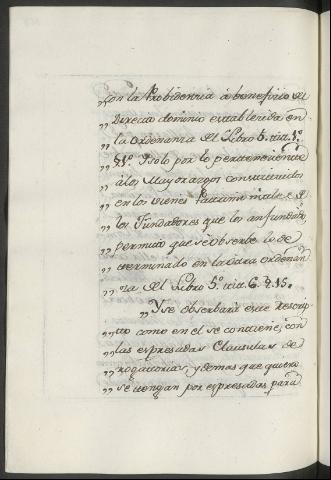 „con la Probidencia à beneficio del
„Directo dominio establecida en
„la ordenanza del Libro 5. titt. 1º.
„§1º. Y solo por lo perteneciente
„álos Mayorazgos constituidos
„en los vienes Patrimoniales de
„los Fundadores que los an fundado
„permito que se observe lo de
„terminado en la otra ordenan
„za del Libro 5º. titt. 6. §. 15.
„Y se observará este Rescrip
„to como en el se contiene, con
„las espresadas Clausulas de
„rogatorias, y demas que quiero
„se tengan por espresadas para